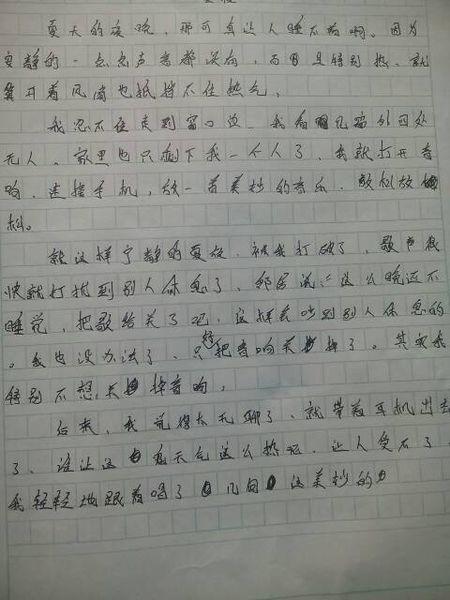 夏天的夜晚，那可真让人睡不着啊。因为
安静的一点点声音都没有，而且特别热，就
算开着风扇也抵挡不住热气。
我忍不住走到窗口边，我看见窗外四处
无人，家里也只剩下我一个人了，我就打开音
响，连接手机，放一首美妙的音乐，放松放
松。
就这样宁静的夏夜，被我打破了，歌声很
快就打扰到别人休息了，邻居说：“这么晚还不
睡觉，把歌给关了吧，这样会吵到别人休息的
。我也没办法了，只好把音响关掉了。其实我
特别不想关掉音响，
后来，我觉得太无聊了，就带着耳机出去
了，谁让这天气这么热呢，让人受不了，
我轻轻地跟着唱了几句这美妙的